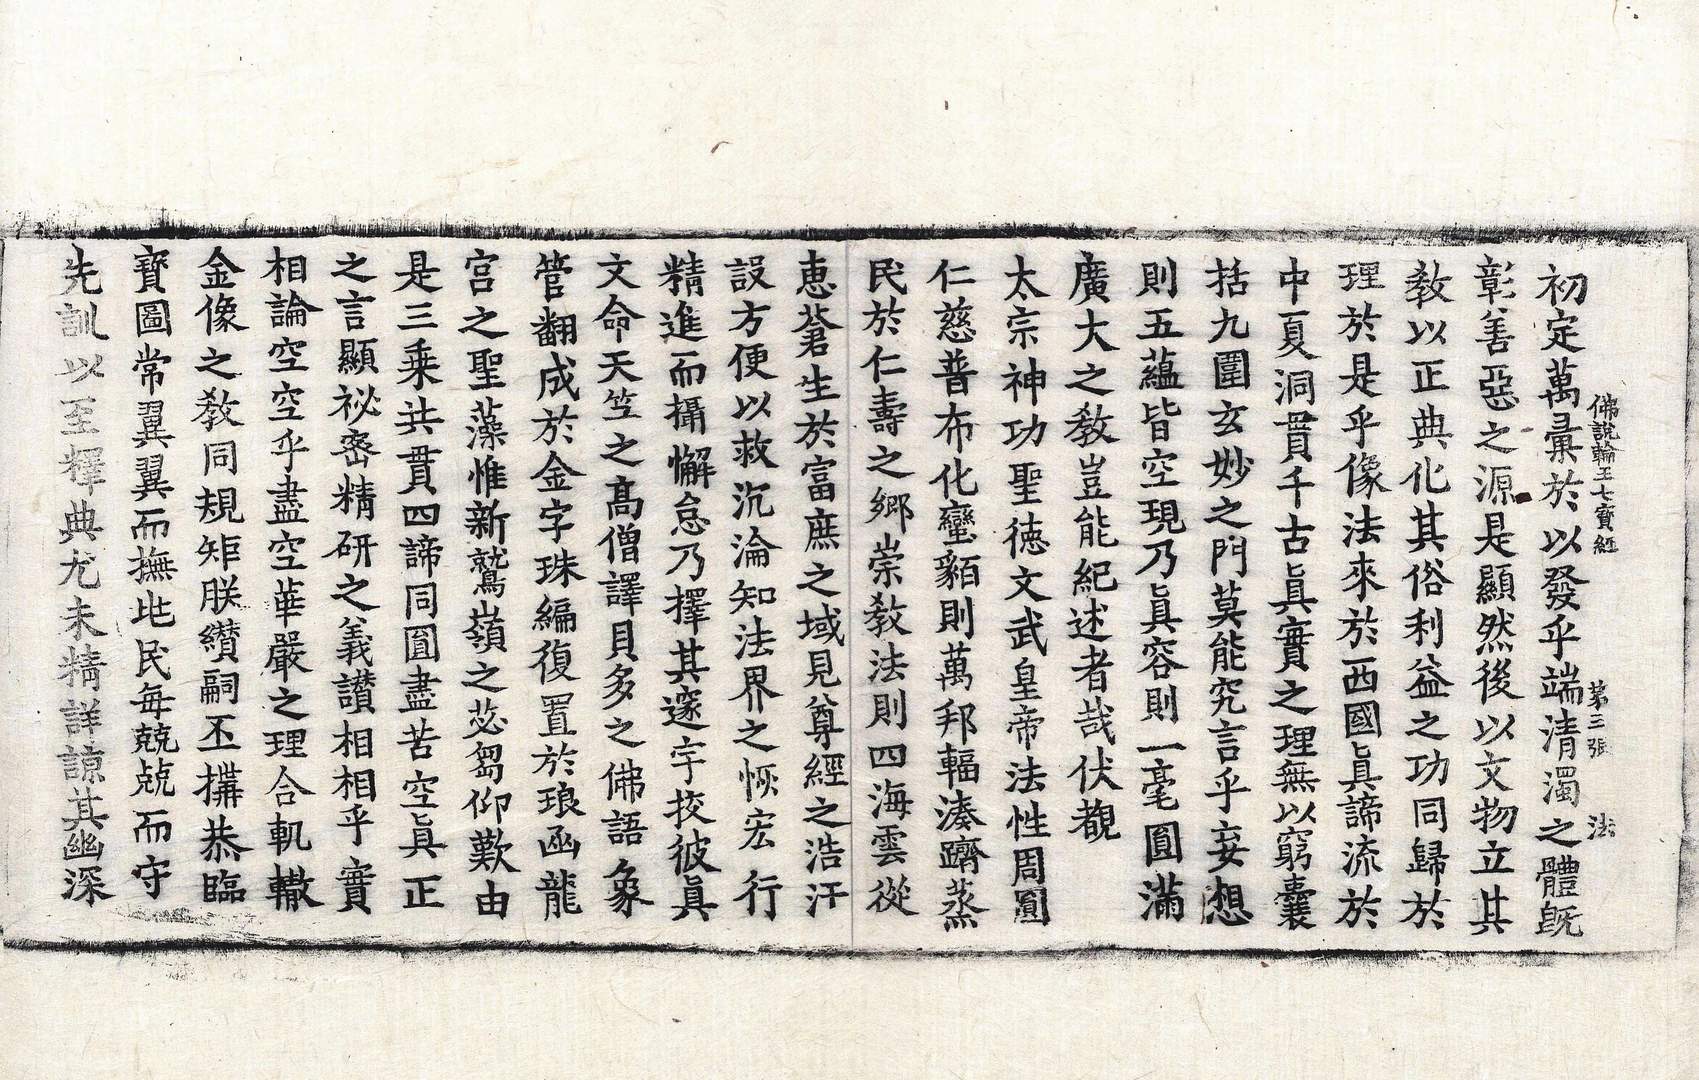 佛說輪王七寶經 第三張 法
初定萬彙於以發乎端清濁之體旣
彰善惡之源是顯然後以文物立其
敎以正典化其俗利益之功同歸於
理於是乎像法來於西國眞諦流於
中夏洞貫千古眞實之理無以窮囊
括九圍玄妙之門莫能究言乎妄想
則五蘊皆空現乃眞容則一毫圓滿
廣大之敎豈能紀述者哉伏覩
太宗神功聖德文武皇帝法性周圓
仁慈普布化蠻貊則萬邦輻湊躋蒸
民於仁壽之鄉崇敎法則四海雲從
惠蒼生於富庶之域見尊經之浩汗
設方便以救沉淪知法界之恢宏行
精進而攝懈怠乃擇其邃宇挍彼眞
文命天竺之高僧譯貝多之佛語象
管翻成於金字珠編復置於琅函龍
宮之聖藻惟新鷲嶺之苾芻仰歎由
是三乘共貫四諦同圓盡苦空眞正
之言顯祕密精硏之義讃相相乎實
相論空空乎盡空華嚴之理合軌轍
金像之敎同規矩朕纘嗣丕搆恭臨
寶圖常翼翼而撫兆民每兢兢而守
先訓以至釋典尤未精詳諒其幽深